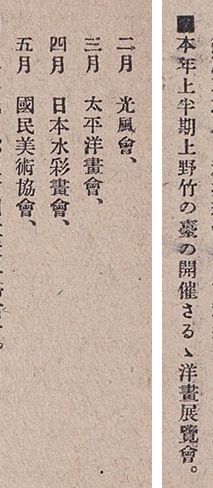 ■本年上半期上野竹の臺の開催さるゝ洋畫展覽會。
二月 光風會、
三月 太平洋畫會、
四月 日本水彩畫會、
五月 國民美術協會、